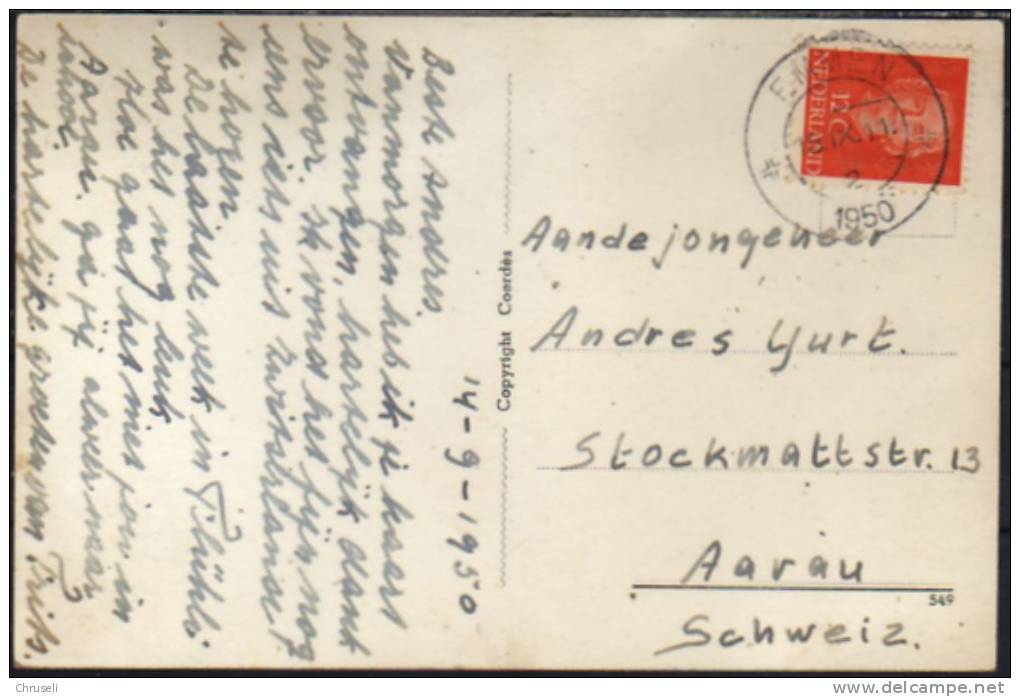 14-9-1950
Beste Andres
Vanmorgen heb ik je kaart
ontvangen, hartelijk dank
ervoor. Ik vond het fijn nog
eens iets uit Zwitserland
te hogen
De laatste week in Flühli
was het nog leuk
Hoe gaat het met jou in
Aarau. ga jij alweer naar
De hartelijke groeten van Frits.
Copyright Coerdès
NEDERLAND
12 C
EMMEN
1950
Aan de jongeheer
Andres Yurt.
Stockmattstr. 13
Aarau
Schweiz.
549
Chruseli
www.delcampe.net